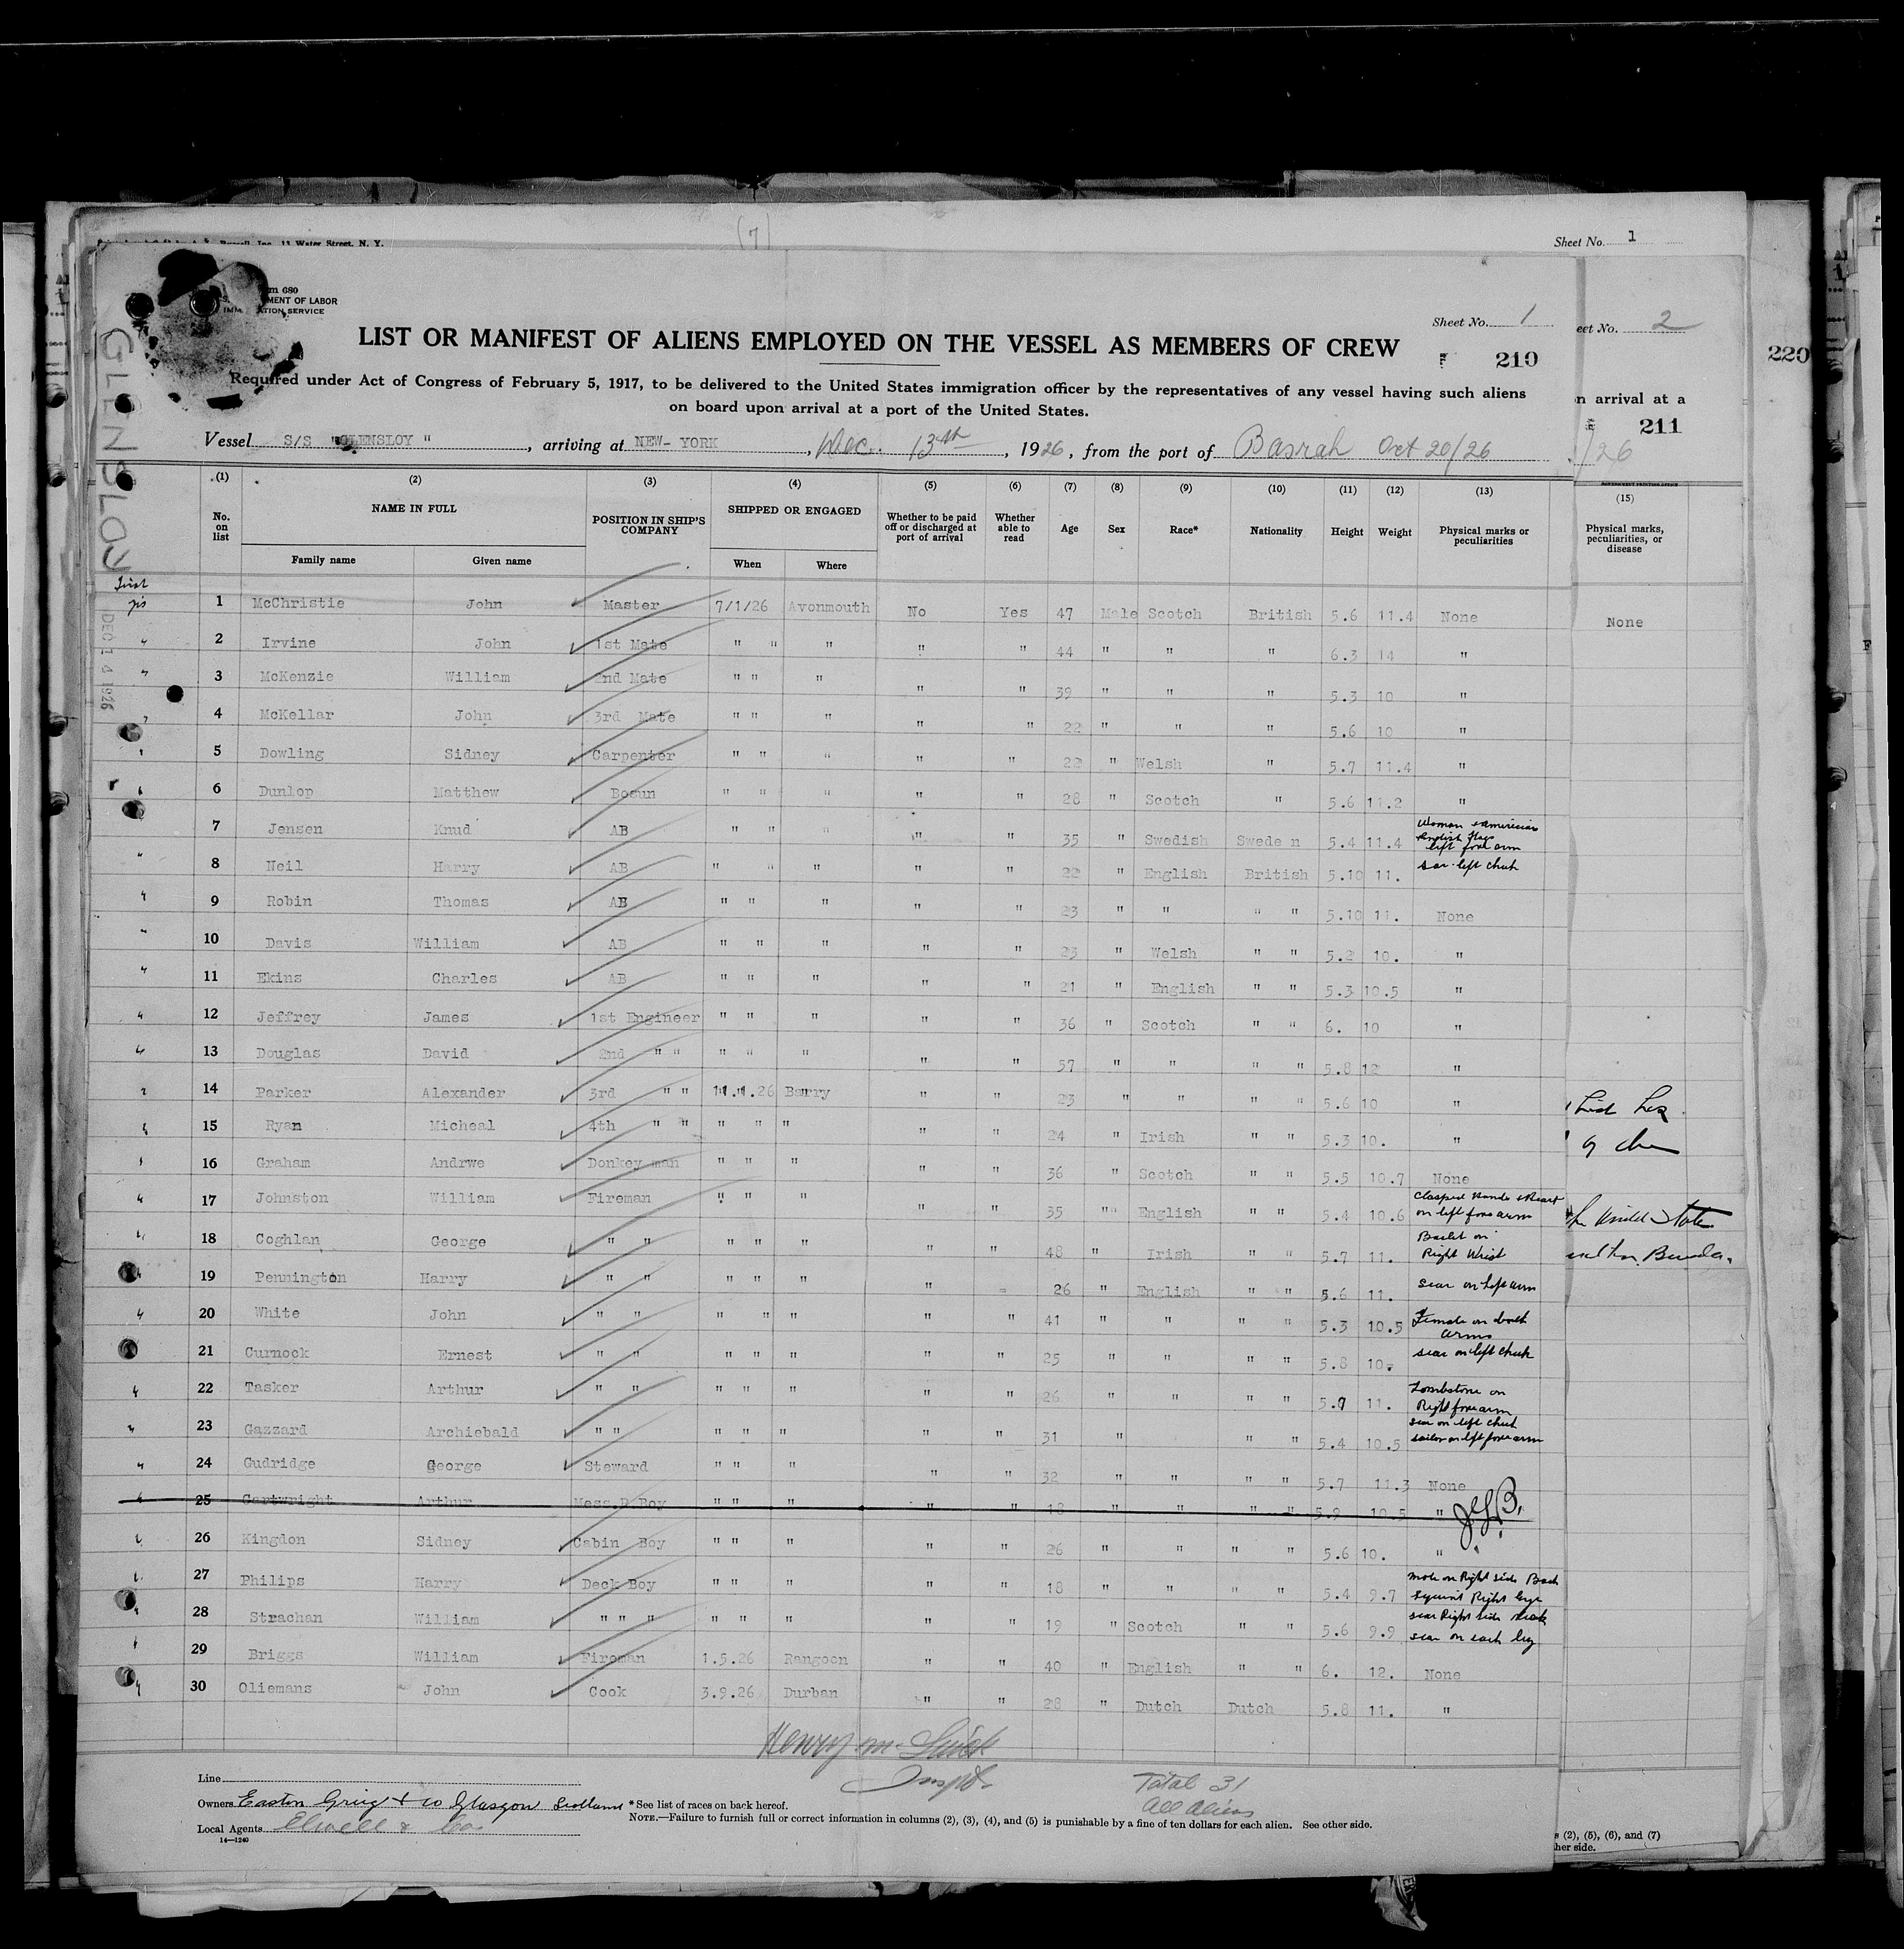 (7)
11 Water Street, N. Y.
Sheet No. 1
MENT OF LABOR
IMM ATION SERVICE
Sheet No. 1
eet No. 2
LIST OR MANIFEST OF ALIENS EMPLOYED ON THE VESSEL AS MEMBERS OF CREW
210
220
Required under Act of Congress of February 5, 1917, to be delivered to the United States immigration officer by the representatives of any vessel having such aliens
on board upon arrival at a port of the United States.
n arrival at a
211
Vessel S/S "GLENSLOY", arriving at NEW-YORK, Dec. 13th, 1926, from the port of Basrah Oct 20/26
/26
GLENSLOY
DEC 14 1926
(1) (2) (3) (4) (5) (6) (7) (8) (9) (10) (11) (12) (13) (15)
No. on list
NAME IN FULL
Family name Given name
POSITION IN SHIP'S COMPANY
SHIPPED OR ENGAGED
When Where
Whether to be paid off or discharged at port of arrival
Whether able to read
Age Sex Race* Nationality Height Weight
Physical marks or peculiarities
Physical marks, peculiarities, or disease
first
1 McChristie John Master 7/1/26 Avonmouth No Yes 47 Male Scotch British 5.6 11.4 None
None
2 Irvine John 1st Mate " " " " " 44 " " " 6.3 14 "
3 McKenzie William 2nd Mate " " " " " 39 " " " 5.3 10 "
4 McKellar John 3rd Mate " " " " " 22 " " " 5.6 10 "
5 Dowling Sidney Carpenter " " " " " 22 " Welsh " 5.7 11.4 "
6 Dunlop Matthew Bosun " " " " " 28 " Scotch " 5.6 11.2 "
7 Jensen Knud AB " " " " " 35 " Swedish Swede n 5.4 11.4 Woman & American English flags left fore arm
8 Neil Harry AB " " " " " 22 " English British 5.10 11. scar left cheek
9 Robin Thomas AB " " " " " 23 " " " " 5.10 11. None
10 Davis William AB " " " " " 23 " Welsh " " 5.2 10. "
11 Ekins Charles AB " " " " " 21 " English " " 5.3 10.5 "
12 Jeffrey James 1st Engineer " " " " " 36 " Scotch " " 6. 10 "
13 Douglas David 2nd " " " " " " " 57 " " " " 5.8 12 "
14 Parker Alexander 3rd " " 11.1.26 Barry " " 23 " " " " 5.6 10 "
15 Ryan Micheal 4th " " " " " " " 24 " Irish " " 5.3 10. "
16 Graham Andrwe Donkey man " " " " " 36 " Scotch " " 5.5 10.7 None
17 Johnston William Fireman " " " " " 35 " " English " " 5.4 10.6 Clasped Hands & Heart on left fore arm
18 Coghlan George " " " " " " " 48 " Irish " " 5.7 11. on Right Wrist
19 Pennington Harry " " " " " " = 26 " English " " 5.6 11. Scar on left arm
20 White John " " " " " " " 41 " " " " 5.3 10.5 Female on both arms
21 Curnock Ernest " " " " " " " 25 " " " " 5.8 10. scar on left cheek
22 Tasker Arthur " " " " " " " 26 " " " " 5.7 11. Tombstone on Right fore arm
23 Gazzard Archiebald " " " " " " " 31 " " " 5.4 10.5 scar on left cheek sailor on left fore arm
24 Gudridge George Steward " " " " " 32 " " " " 5.7 11.3 None
25 Cartwright Arthur Mess.R.Boy " " " " " 18 " " " " 5.9 10.5 "
26 Kingdon Sidney Cabin Boy " " " " " 26 " " " " 5.6 10. "
27 Philips Harry Deck Boy " " " " " 18 " " " " 5.4 9.7 mole on Right side Back Squint Right Eye
28 Strachan William " " " " " " " " 19 " Scotch " " 5.6 9.9 scar Right side scar on each leg
29 Briggs William Fireman 1.5.26 Rangoon " " 40 " English " " 6. 12. None
30 Oliemans John Cook 3.9.26 Durban " " 28 " Dutch Dutch 5.8 11. "
Total 31
All Aliens
Line
Owners Easton Greig & Co Glasgow Scotland
*See list of races on back hereof.
NOTE.—Failure to furnish full or correct information in columns (2), (3), (4), and (5) is punishable by a fine of ten dollars for each alien. See other side.
Local Agents Elwell & Co
14—1240
s (2), (5), (6), and (7)
her side.